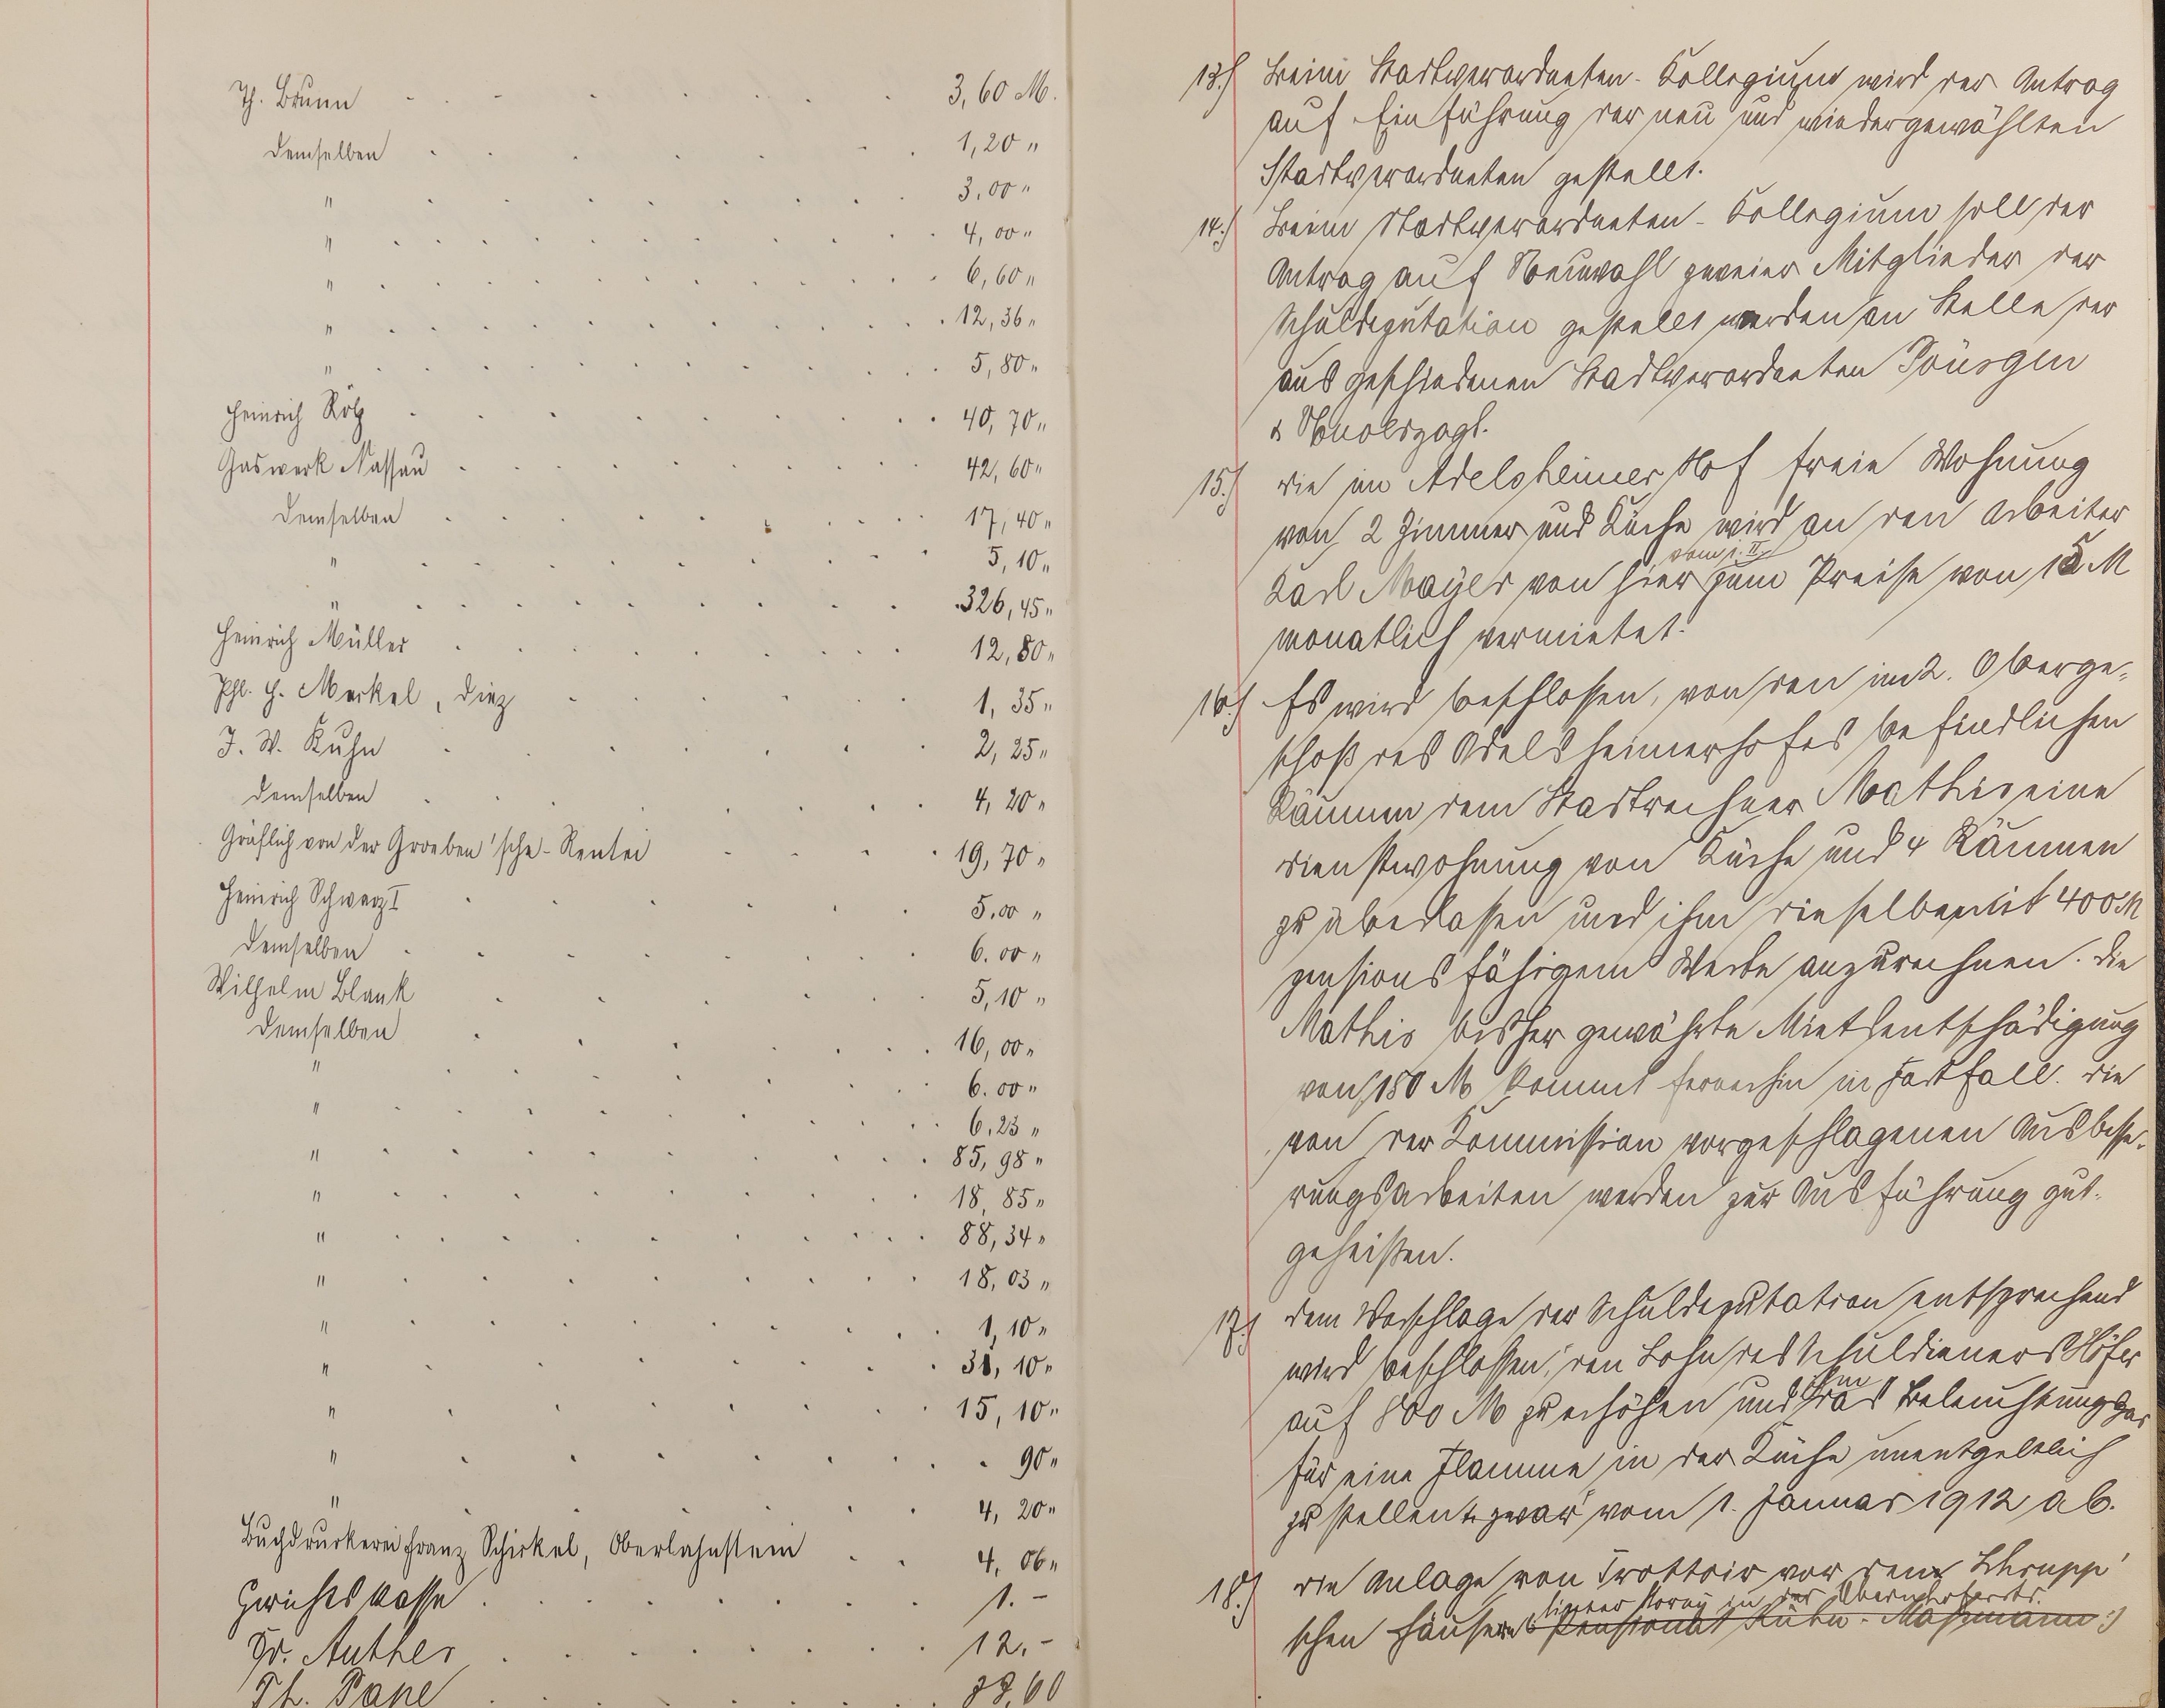 Th. Brunn 3,60 M.
Demselben 1,20 "
" 3,00 "
" 4,00 "
" 6,60 "
" 12,36 "
" 5,80 "
Heinrich Rötz 40,70 "
Gaswerk Nassau 42,60 "
Demselben 17,40 "
" 5,10 "
" 326,45 "
Heinrich Müller 12,80 "
Phl. H. Merkel, Diez 1,35 "
J. W. Kuhn 2,25 "
Demselben 4,20 "
Gräflich von der Groeben'sche-Rentei 19,70 "
Heinrich Schwarz I 5,00 "
Demselben 6.00 "
Wilhelm Blank 5,10 "
Demselben 16,00 "
" 6.00 "
" 6,23 "
" 85,98 "
" 18,85 "
" 88,34 "
" 18,03 "
" 1,10 "
" 31,10 "
" 15,10 "
" 90 "
" 4,20 "
Buchdruckerei Franz Schickel, Oberlahnstein 4,06 "
Gerichtskasse 1.-
Fr. Anther 12.-
Th. Pape
13.) Beim Stadtverordneten-Kollegium wird der Antrag
auf Einführung der neu und wiedergewählten
Stadtverordneten gestellt.
14.) Beim Stadtverordneten-Kollegium soll der
Antrag auf Neuwahl zweier Mitglieder der
Schuldeputation gestellt werden an Stelle der
ausgeschiedenen Stadtverordneten
&
15.) Die im Adelsheimer Hof freie Wohnung
von 2 Zimmer und Küche wird an den Arbeiter
Karl Mayer von hier vom 1. II. zum Preise von 15 M
monatlich vermietet.
16.) Es wird beschlossen, von den im 2. Oberge-
schoß des Adelsheimerhofes befindlichen
Räumen dem Stadtrechner Mathis eine
Dienstwohnung von Küche und 4 Räumen
zu überlassen und ihm dieselbe mit 400 M
pensionsfähigem Werte anzurechnen. Die
Mathis bisher gewährte Mietsentschädigung
von 180 M kommt fernerhin in Fortfall. Die
von der Kommission vorgeschlagenen Ausbesse-
rungsarbeiten werden zur Ausführung gut-
geheißen.
17.) Dem Vorschlage der Schuldeputation entsprechend
wird beschlossen, den Lohn des Schuldieners Höfer
auf 800 M zu erhöhen und ihm das Beleuchtungsgas
für eine Flamme in der Küche unentgeltlich
zu stellen & zwar vom 1. Januar 1912 ab.
18.) Die Anlage von Trottoir vor den Schrupp'
in der Obernhoferstr.
schen Häusern Pensionat Kuhn-Massmann :)